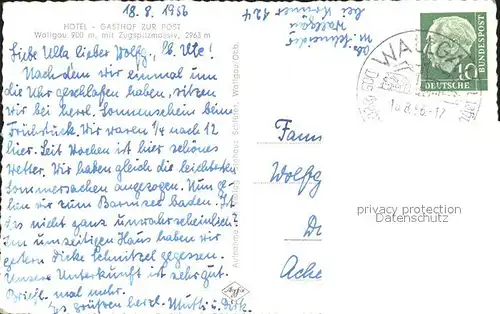 18.8.1956
HOTEL - GASTHOF ZUR POST
Wallgau 900 m, mit Zugspitzmassiv, 2963 m
Liebe Ulla lieber Wolfg., lb. Ute!
Nachdem wir einmal um
die Uhr geschlafen haben, sitzen
wir bei herrl. Sonnenschein beim
Frühstück. Wir waren 1/4 nach 12
hier. Seit Wochen ist hier schönes
Wetter. Wir haben gleich die leichtesten
Sommersachen angezogen. Nun ge-
hen wir zum Barmsee baden. Ist
das nicht ganz unwahrscheinlich?
Im umseitigen Haus haben wir
gestern dicke Schnitzel gegessen.
Unsere Unterkunft ist sehr gut.
Briefl. mal mehr.
Es grüßen herzl. Mutti u. Dirk.
Abs. Schneider
Wallgau
bei Krämer 124
WALLGAU
18.8.56.-17
10
DEUTSCHE
BUNDESPOST
Fam
Wolfg
D
Ache
privacy protection
Datenschutz
Agfa